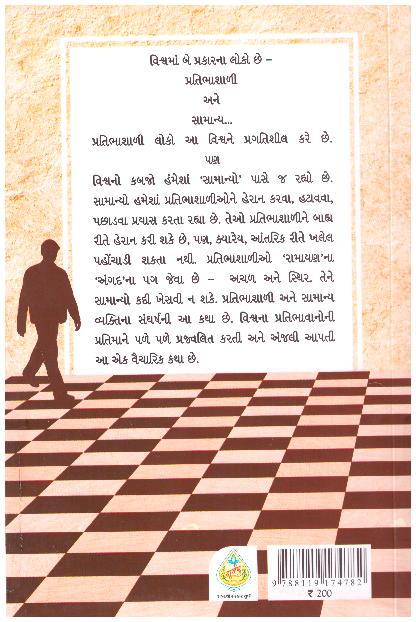 વિશ્વમાં બે પ્રકારના લોકો છે –
પ્રતિભાશાળી
અને
સામાન્ય...
પ્રતિભાશાળી લોકો આ વિશ્વને પ્રગતિશીલ કરે છે.
પણ
વિશ્વનો કબજો હંમેશાં ‘સામાન્યો’ પાસે જ રહ્યો છે.
સામાન્યો હમેશાં પ્રતિભાશાળીઓને હેરાન કરવા, હટાવવા,
પછાડવા પ્રયાસ કરતા રહ્યા છે. તેઓ પ્રતિભાશાળીને બાહ્ય
રીતે હેરાન કરી શકે છે, પણ, ક્યારેય, આંતરિક રીતે ખલેલ
પહોંચાડી શકતા નથી. પ્રતિભાશાળીઓ ‘રામાયણ’ના
‘અંગદ’ના પગ જેવા છે – અચળ અને સ્થિર. તેને
સામાન્યો કદી ખેસવી ન શકે. પ્રતિભાશાળી અને સામાન્ય
વ્યક્તિના સંઘર્ષની આ કથા છે. વિશ્વના પ્રતિભાવાનોની
પ્રતિમાને પળે પળે પ્રજ્વલિત કરતી અને અંજલી આપતી
આ એક વૈચારિક કથા છે.
9 788119 174782
₹ 200